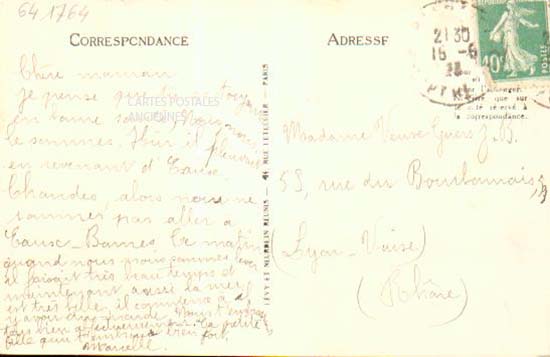 64 1764
CORRESPONDANCE
Chère maman
je pense que
en bonne Nous nous
le sommes. Hier il pleuvait
en revenant d'Eaux-
Chaudes, alors nous ne
sommes pas aller à
Eaux-Bonnes. Ce matin
quand nous nous sommes levé
il faisait très beau temps et
maintenant aussi la mer
est très belle, il commence à
y avoir du monde. Nous t'embrassons
tous bien affectueusement. Ta petite
fille qui t'embrasse bien fort.
Marcelle.
CARTES POSTALES
ANCIENNES
LÉVY ET NEURDEIN RÉUNIS - 44 RUE LETELLIER - PARIS
ADRESSE
21 30
16 - 6
POSTES
40c
réservé à
la correspondance.
Madame Veuve
55, rue du Bourbonnais, 55
Lyon-Vaise
(Rhône)